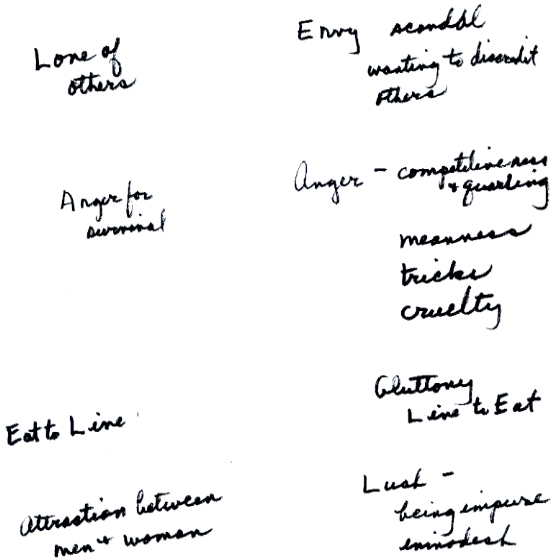 Love of
others
Envy scandal
wanting to discredit
others
Anger for
survival
Anger - competitiveness
+ quarling
meanness
tricks
cruelty
Eat to Live
Gluttony
Live to Eat
Attraction between
men + woman
Lush -
being impure